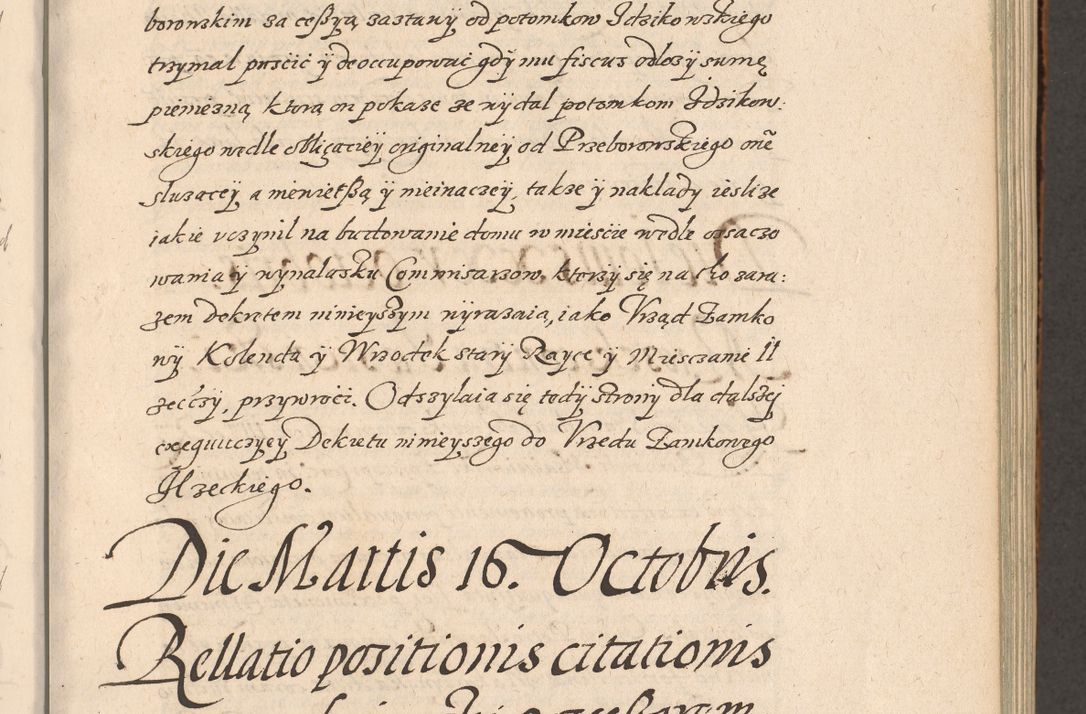 borowskim za cessyą zastawy od potomkow Idzikowskiego
trzymal puscić ÿ deoccupować gdÿ mu fiscus odlozÿ sumę
pieniezną, ktorą on pokaze ze wydal potomkom Idzikow:
skiego wedle obligacieÿ originalneÿ od Przeborowskiego onē
sluzaceÿ, a menietszą ÿ nieinaczeÿ, takze ÿ naklady iesli ze
iakie vczynil na budowanie domu w miescie wedle oszaczo
wania ÿ wynalasku Commisarzow, ktorzy się na to zara:
zem dekretem ninieyszym wyrazaią, iako Vrząd Zamko
wy Kolenda ÿ Wrzodek starÿ Rayce ÿ Miesczanie Il
zeccy, przywroci. Odszylaia się tedÿ strony dla dalszej
exequucyeÿ Dekretu ninieyszego do Vrzedu Zamkowego
Ilzeckiego.
Die Martis 16. Octobris.
Rellatio positionis citationis